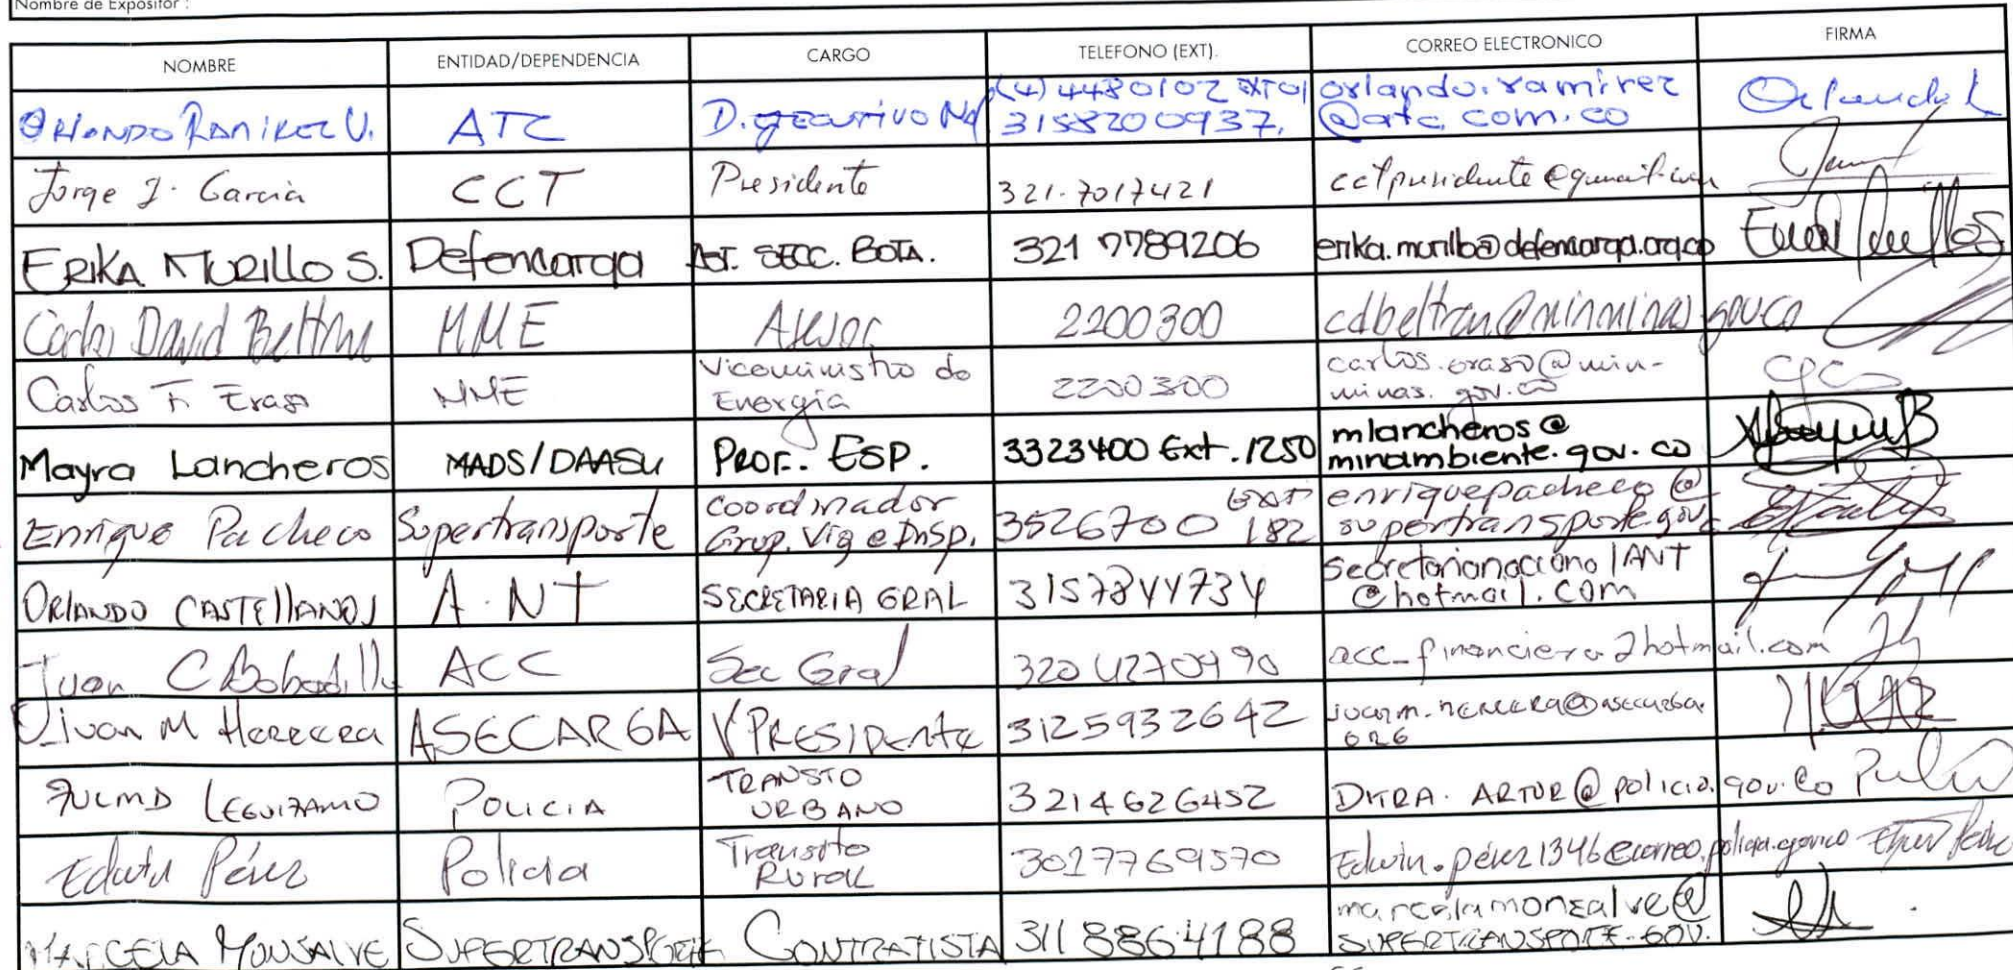 Nombre de Expositor :
NOMBRE ENTIDAD/DEPENDENCIA CARGO TELEFONO (EXT). CORREO ELECTRONICO FIRMA
ORLANDO RAMIREZ V. ATC D. EJECUTIVO Nal (4) 4480102 EXT 01 orlando.ramirez
3158200937, @atc.com.co
Jorge J. García CCT Presidente 321-7017421 cctpresidente@gmail.com
ERIKA MURILLO S. Defencarga SECC. BOTA. 321 7789206 erika.murillo@defencarga.org.co
Carlos David Beltrán MME Asesor 2200300 cdbeltran@minminas.gov.co
Carlos F. Eraso MME Viceministro de 2200300 carlos.eraso@min-
Energía minas.gov.co
Mayra Lancheros MADS/DAASU PROF. ESP. 3323400 Ext. 1250 mlancheros@
minambiente.gov.co
Enrique Pacheco Supertransporte Coordinador 3526700 EXT enriquepacheco@
Grup. Vig e Insp. 182 supertransporte.gov.
ORLANDO CASTELLANOS A.NT SECRETARIA GRAL 3157844734 secretarionacionalANT
@hotmail.com
Juan C Bobadilla ACC Sec Gral 3204270990 acc_financiera@hotmail.com
Juan M Herrera ASECARGA V PRESIDENTE 3125932642 juanm.herrera@asecarga.
ORG
LEGUIZAMO POLICIA TRANSTO 3214626452 DITRA.ARTUR@policia.gov.co
URBANO
Edwin Pérez Policia Transito 3017769570 Edwin.pérez1346@correo.policia.gov.co
RURAL
MARCELA MONSALVE SUPERTRANSPORTE CONTRATISTA 311 8864188 marcelamonsalve@
SUPERTRANSPORTE.GOV.